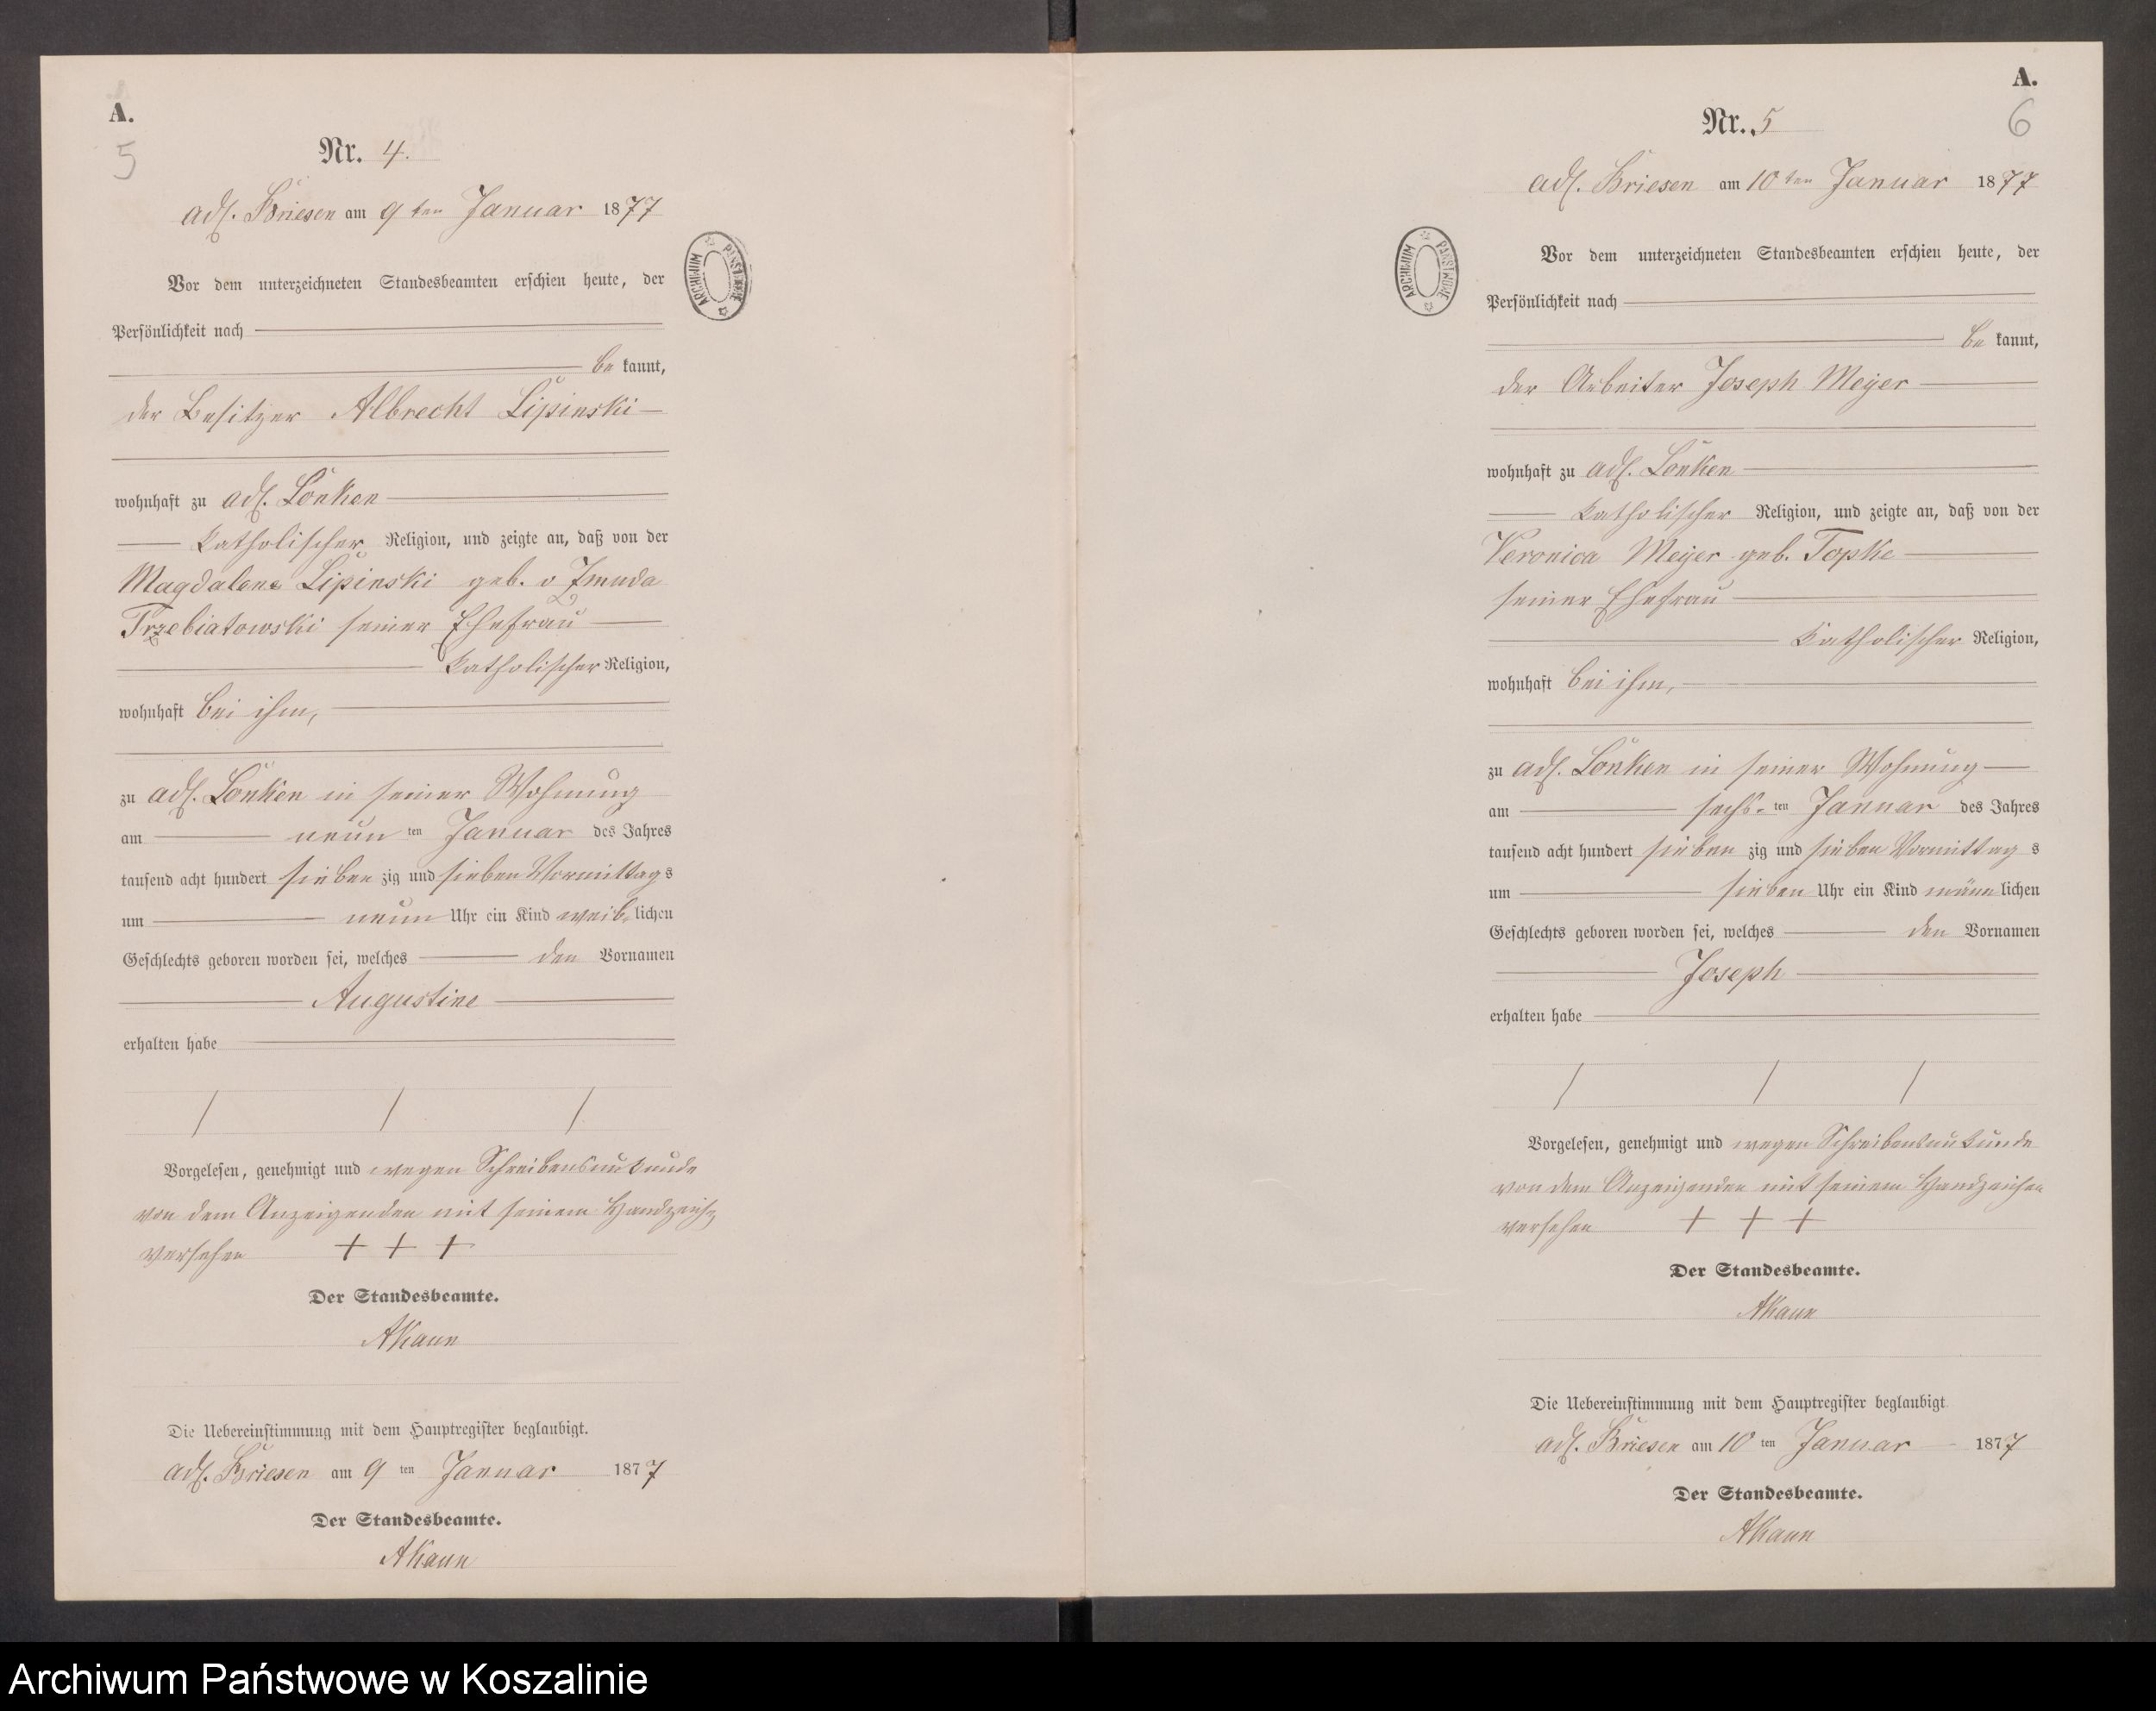 A.
5
Nr. 4.
adl. Briesen am 9ten Januar 1877
Vor dem unterzeichneten Standesbeamten erschien heute, der
Persönlichkeit nach
be kannt,
der Besitzer Albrecht Lipinski
wohnhaft zu adl. Lonken
katholischer Religion, und zeigte an, daß von der
Magdalene Lipinski geb. v Zmuda
Trzebiatowski seiner Ehefrau
katholischer Religion,
wohnhaft bei ihm,
zu adl. Lonken in seiner Wohnung
am neun ten Januar des Jahres
tausend acht hundert sieben zig und sieben Vormittag s
um neun Uhr ein Kind weib lichen
Geschlechts geboren worden sei, welches den Vornamen
Augustine
erhalten habe
Vorgelesen, genehmigt und wegen Schreibensunkunde
von dem Anzeigenden mit seinem Handzeichen
versehen + + +
Der Standesbeamte.
AKaun
Die Uebereinstimmung mit dem Hauptregister beglaubigt.
adl. Briesen am 9 ten Januar 1877
Der Standesbeamte.
AKaun
ARCHIWUM PAŃSTWOWE
A.
6
Nr. 5
adl. Briesen am 10ten Januar 1877
Vor dem unterzeichneten Standesbeamten erschien heute, der
Persönlichkeit nach
be kannt,
der Arbeiter Joseph Meyer
wohnhaft zu adl. Lonken
katholischer Religion, und zeigte an, daß von der
Veronica Meyer geb. Topke
seiner Ehefrau
katholischer Religion,
wohnhaft bei ihm,
zu adl. Lonken in seiner Wohnung
am sechs ten Januar des Jahres
tausend acht hundert sieben zig und sieben Vormittag s
um sieben Uhr ein Kind männ lichen
Geschlechts geboren worden sei, welches den Vornamen
Joseph
erhalten habe
Vorgelesen, genehmigt und wegen Schreibensunkunde
von dem Anzeigenden mit seinem Handzeichen
versehen + + +
Der Standesbeamte.
AKaun
Die Uebereinstimmung mit dem Hauptregister beglaubigt
adl. Briesen am 10 ten Januar 1877
Der Standesbeamte.
AKaun
ARCHIWUM PAŃSTWOWE
Archiwum Państwowe w Koszalinie